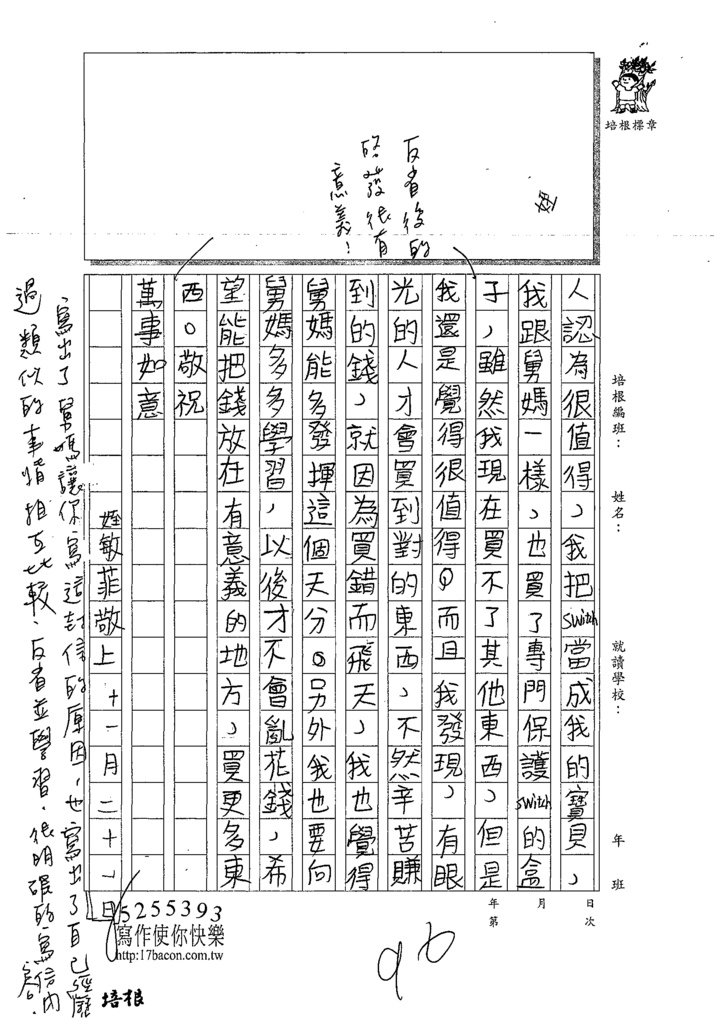 培根標章
反省後的
啓發很有
意義！
人認為很值得，我把switch當成我的寶貝，
我跟舅媽一樣，也買了專門保護switch的盒
子，雖然我現在買不了其他東西，但是
我還是覺得很值得。而且我發現，有眼
光的人才會買到對的東西，不然辛苦賺
到的錢，就因為買錯而飛天，我也覺得
舅媽能多發揮這個天分。另外我也要向
舅媽多多學習，以後才不會亂花錢，希
望能把錢放在有意義的地方，買更多東
西。敬祝
萬事如意
姪敏菲敬上 十一月二十一日
寫出了舅媽讓你寫這封信的原因，也寫出了自己經歷
過類似的事情相互比較、反省並學習。很明確的寫信內容。
培根編班：
姓名：
就讀學校：
年 班
年 月 日
第 次
5255393
寫作使你快樂
http:17bacon.com.tw
培根
96